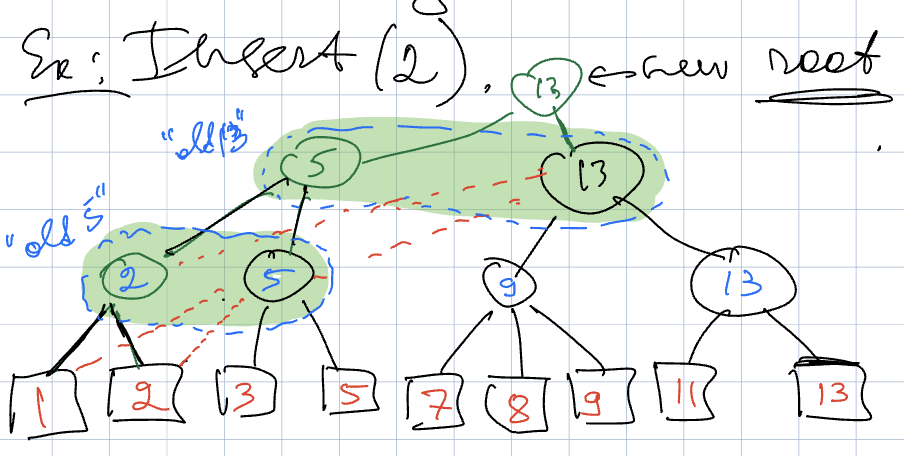 Ex: Insert (2).
13 ← new root
"old 13"
5 13
"old 5"
2 5 9 13
1 2 3 5 7 8 9 11 13